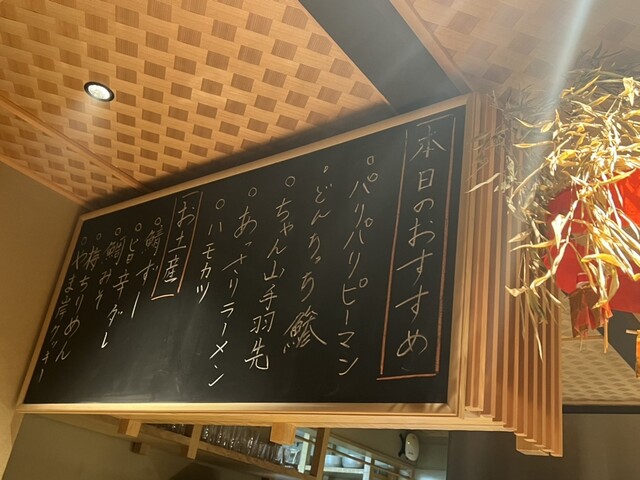 本日のおすすめ
○パリパリピーマン
○どんちっち鯵
○ちゃん山手羽先
○あっさりラーメン
○ハモカツ
お土産
○鯖ずし
○旨辛ダレ
○鯛みそ
○梅ちりめん
○やま岸クッキー